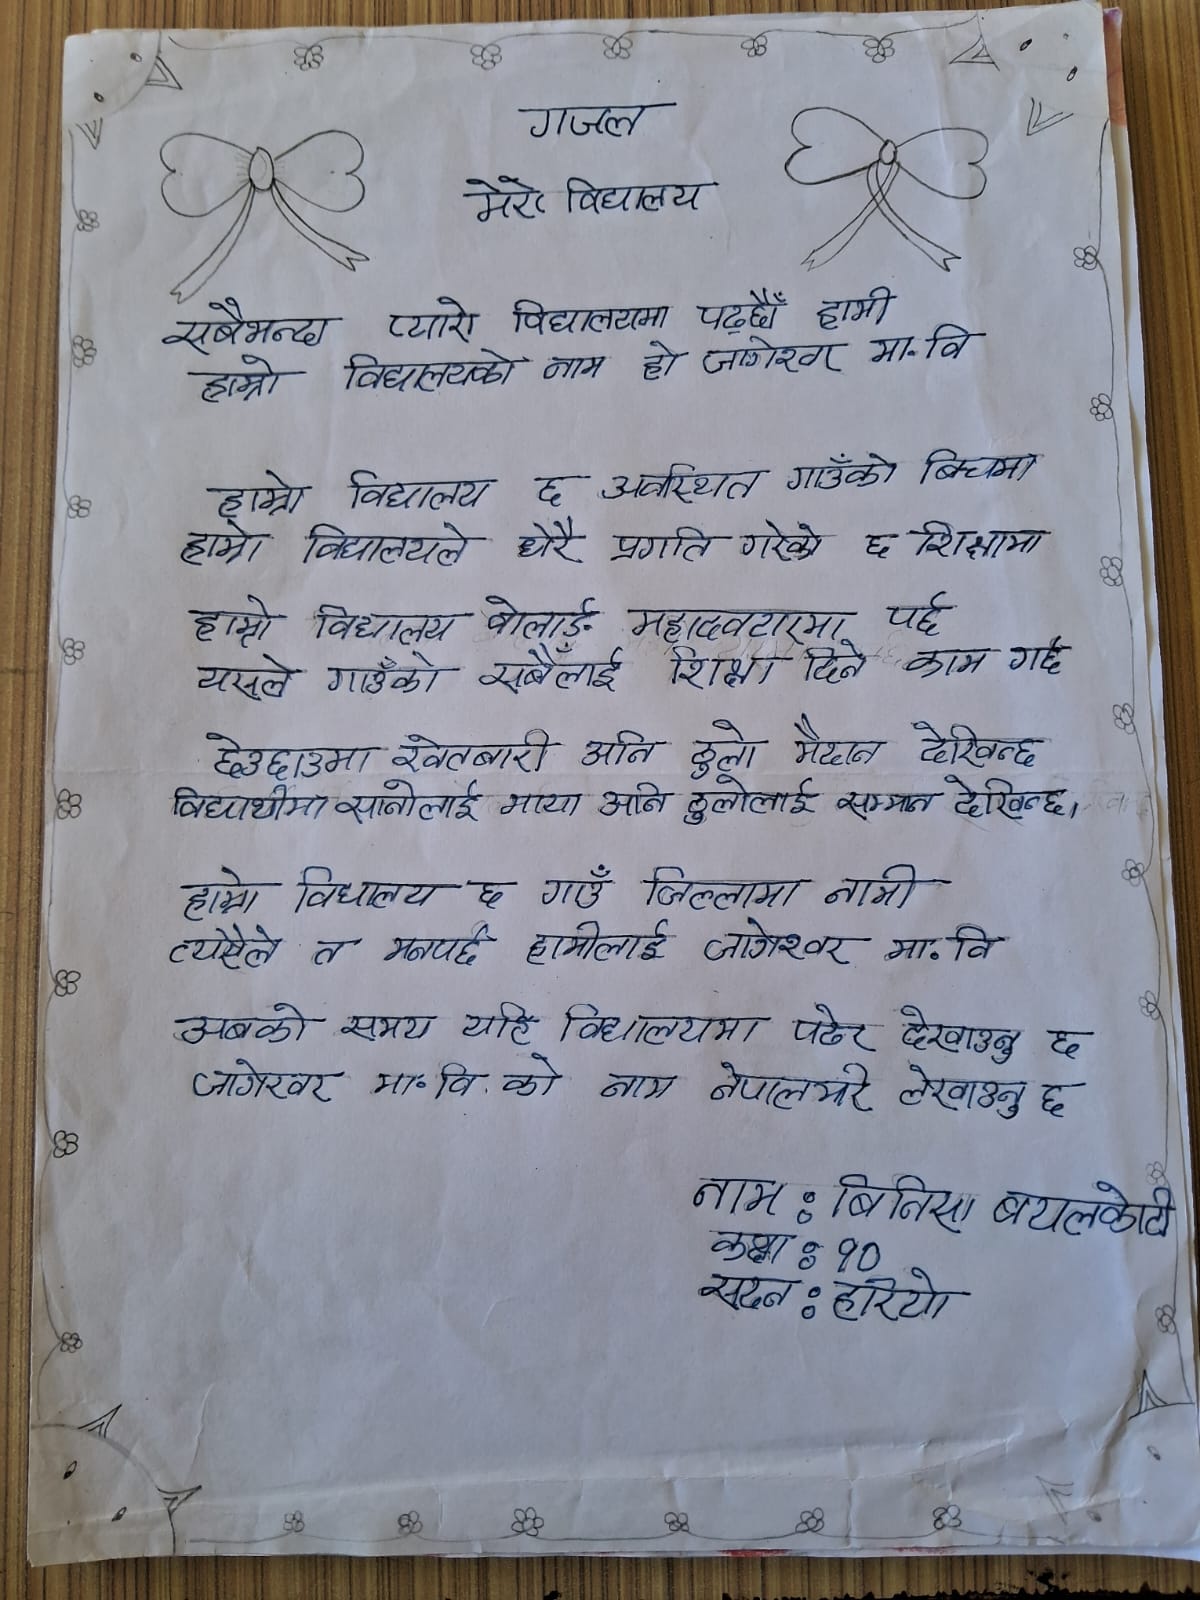 गजल
मेरो विद्यालय
सबैभन्दा प्यारो विद्यालयमा पढ्छौँ हामी
हाम्रो विद्यालयको नाम हो जागेश्वर मा.वि
हाम्रो विद्यालय छ अवस्थित गाउँको बिचमा
हाम्रो विद्यालयले धेरै प्रगति गरेको छ शिक्षामा
हाम्रो विद्यालय वोलाई महादेवटारमा पर्छ
यसले गाउँको सबैँलाई शिक्षा दिने काम गर्छ
छेउछाउमा खेतबारी अनि ठुलो मैदान देखिन्छ
विद्यार्थीमा सानोलाई माया अनि ठुलोलाई सम्मान देखिन्छ।
हाम्रो विद्यालय छ गाउँ जिल्लामा नामी
त्यसैले त मनपर्छ हामीलाई जागेश्वर मा.वि
अबको समय यहि विद्यालयमा पढेर देखाउनु छ
जागेश्वर मा.वि.को नाम नेपालभरि लेखाउनु छ
नाम : बिनिसा बयलकोटी
कक्षा : १०
सदन : हरियो